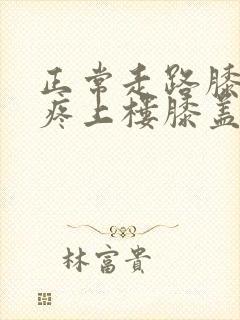 正常走路膝
疼上楼膝盖
林富貴